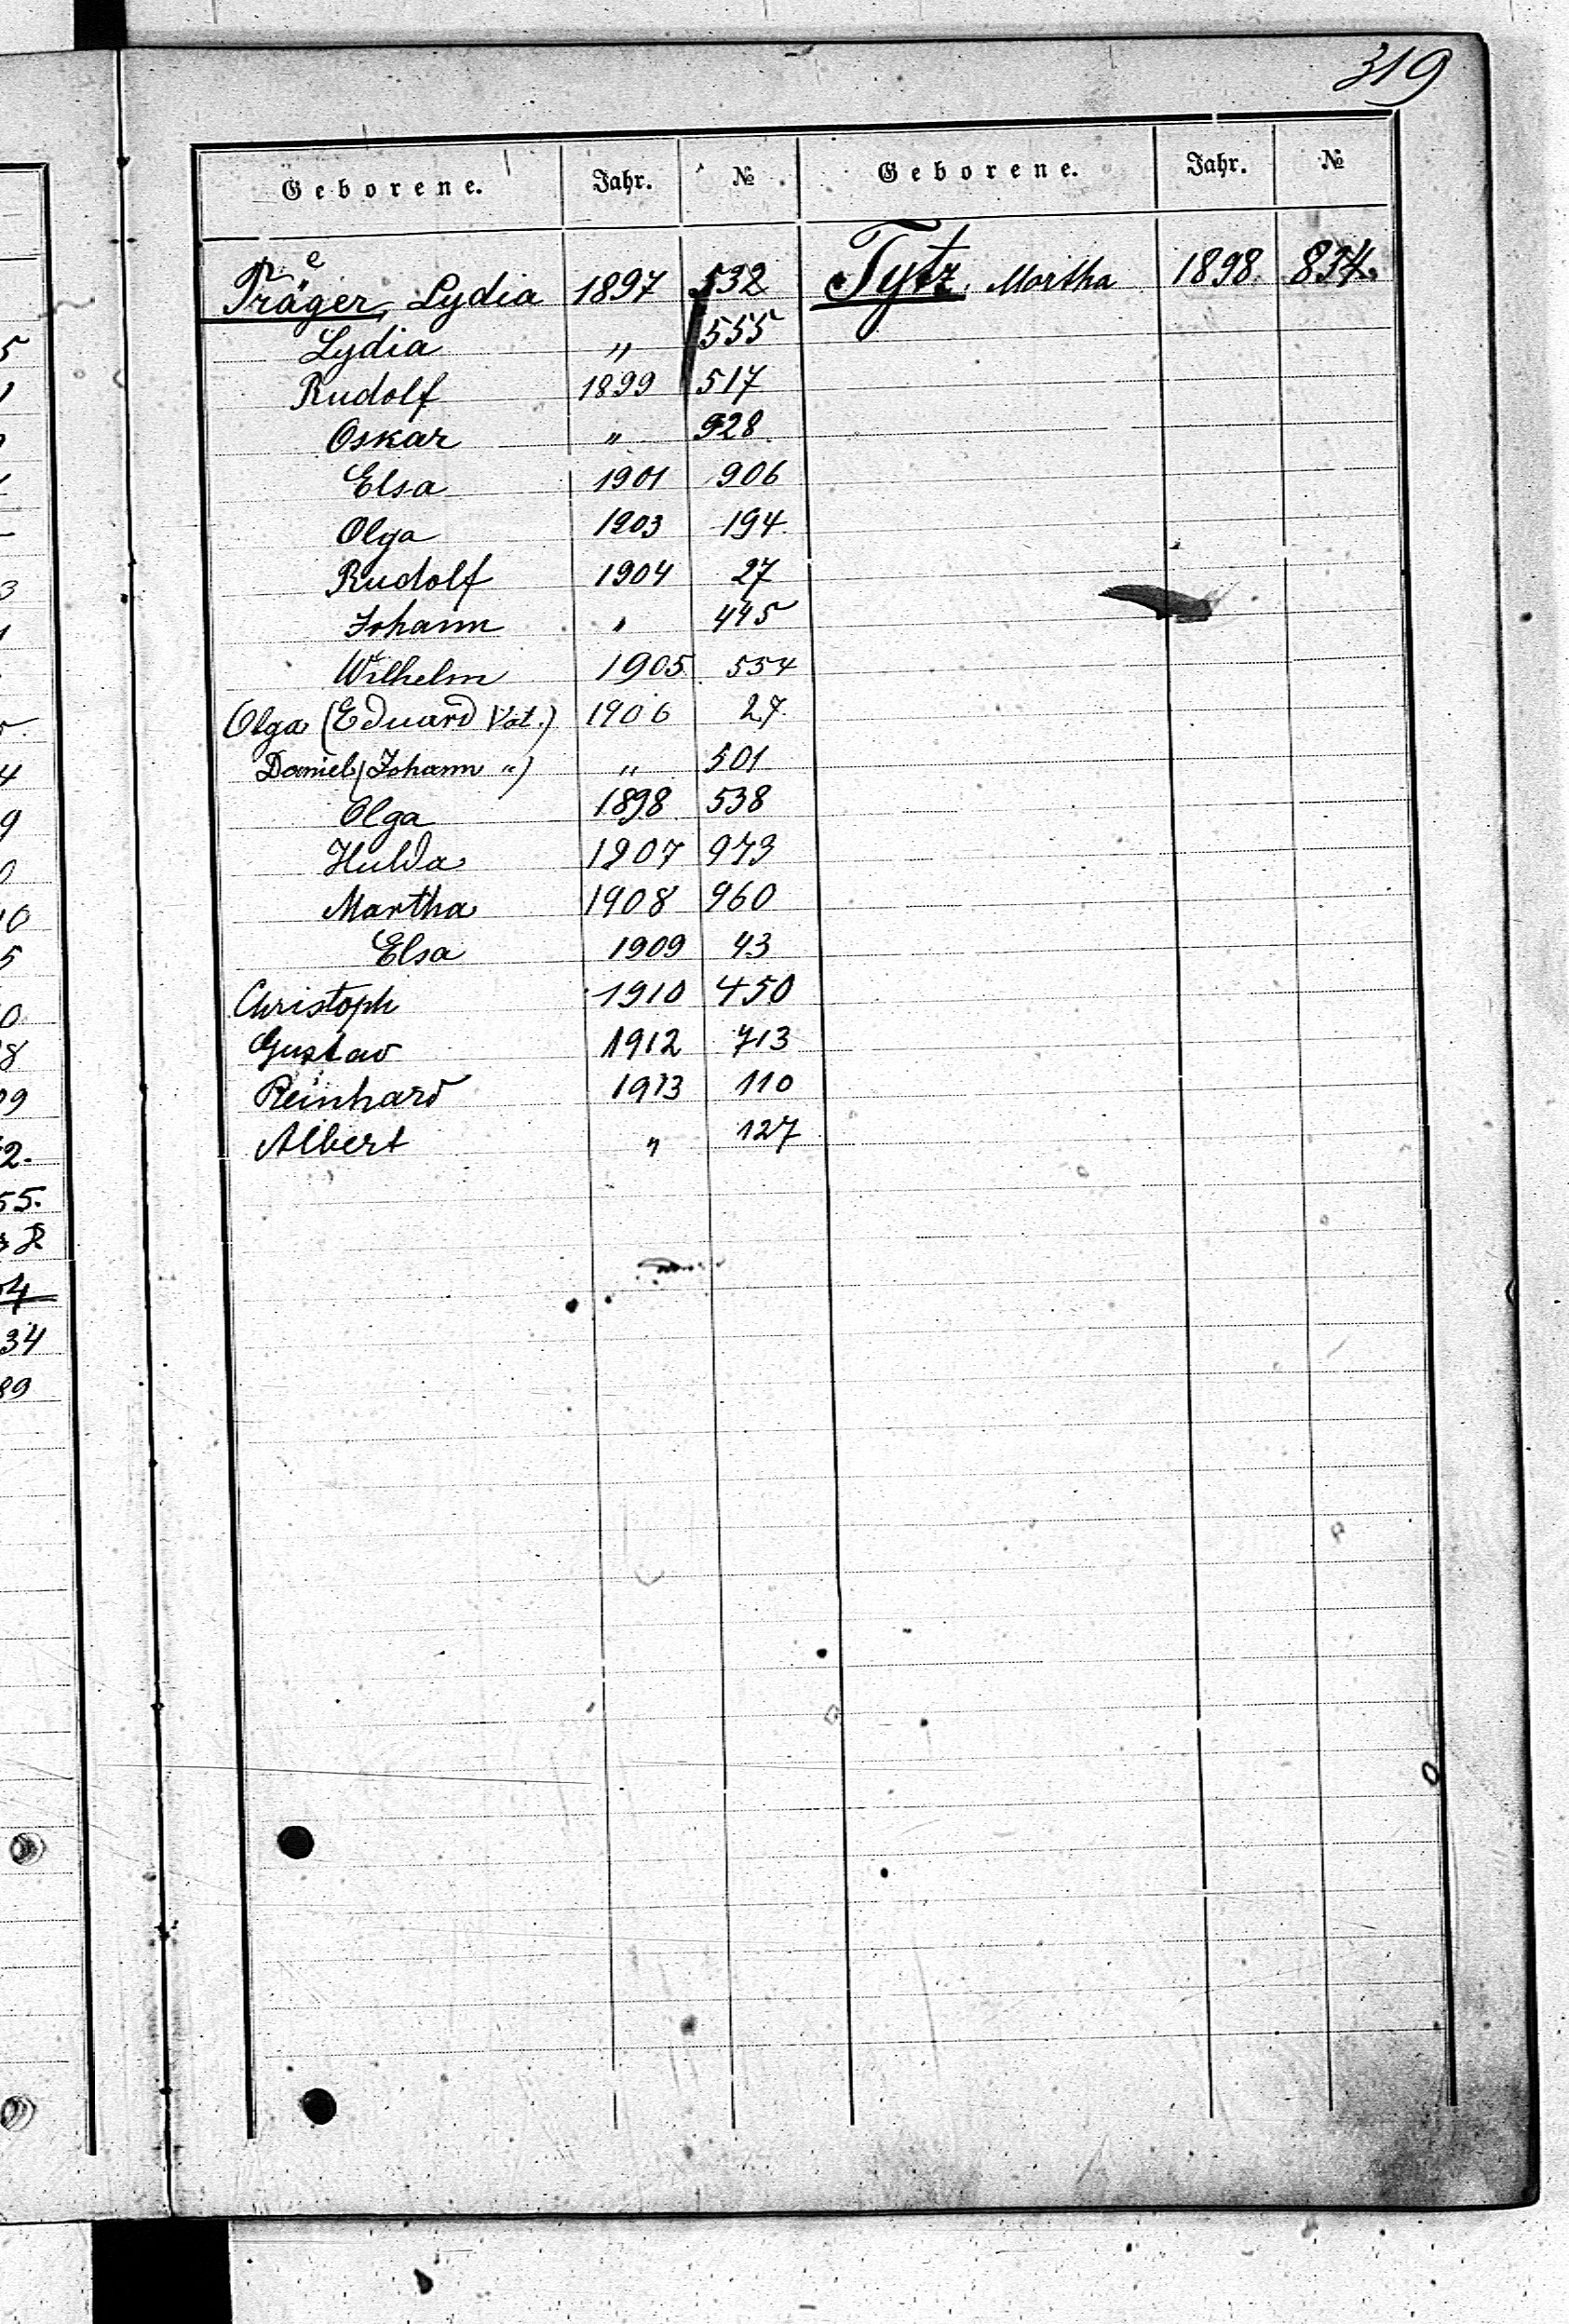 319
Geborene. Jahr. № Geborene. Jahr. №
e
Träger, Lydia 1897 532 Tytz. Martha 1898. 834.
Lydia „ 555
Rudolf 1899 517
Oskar „ 928.
Elsa 1901 906
Olga 1903 194.
Rudolf 1904 27
Johann „ 445
Wilhelm 1905. 554
Olga (Eduard Vat.) 1906 27.
Daniel (Johann „) „ 501
Olga 1898 538
Hulda 1907 973
Martha 1908 960
Elsa 1909 43
Christoph 1910 450
Gustav 1912 713
Reinhard 1913 110
Albert „ 127